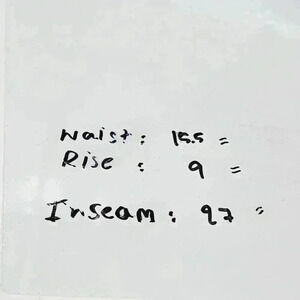 Waist: 15.5 =
Rise : 9 =
Inseam: 27 =